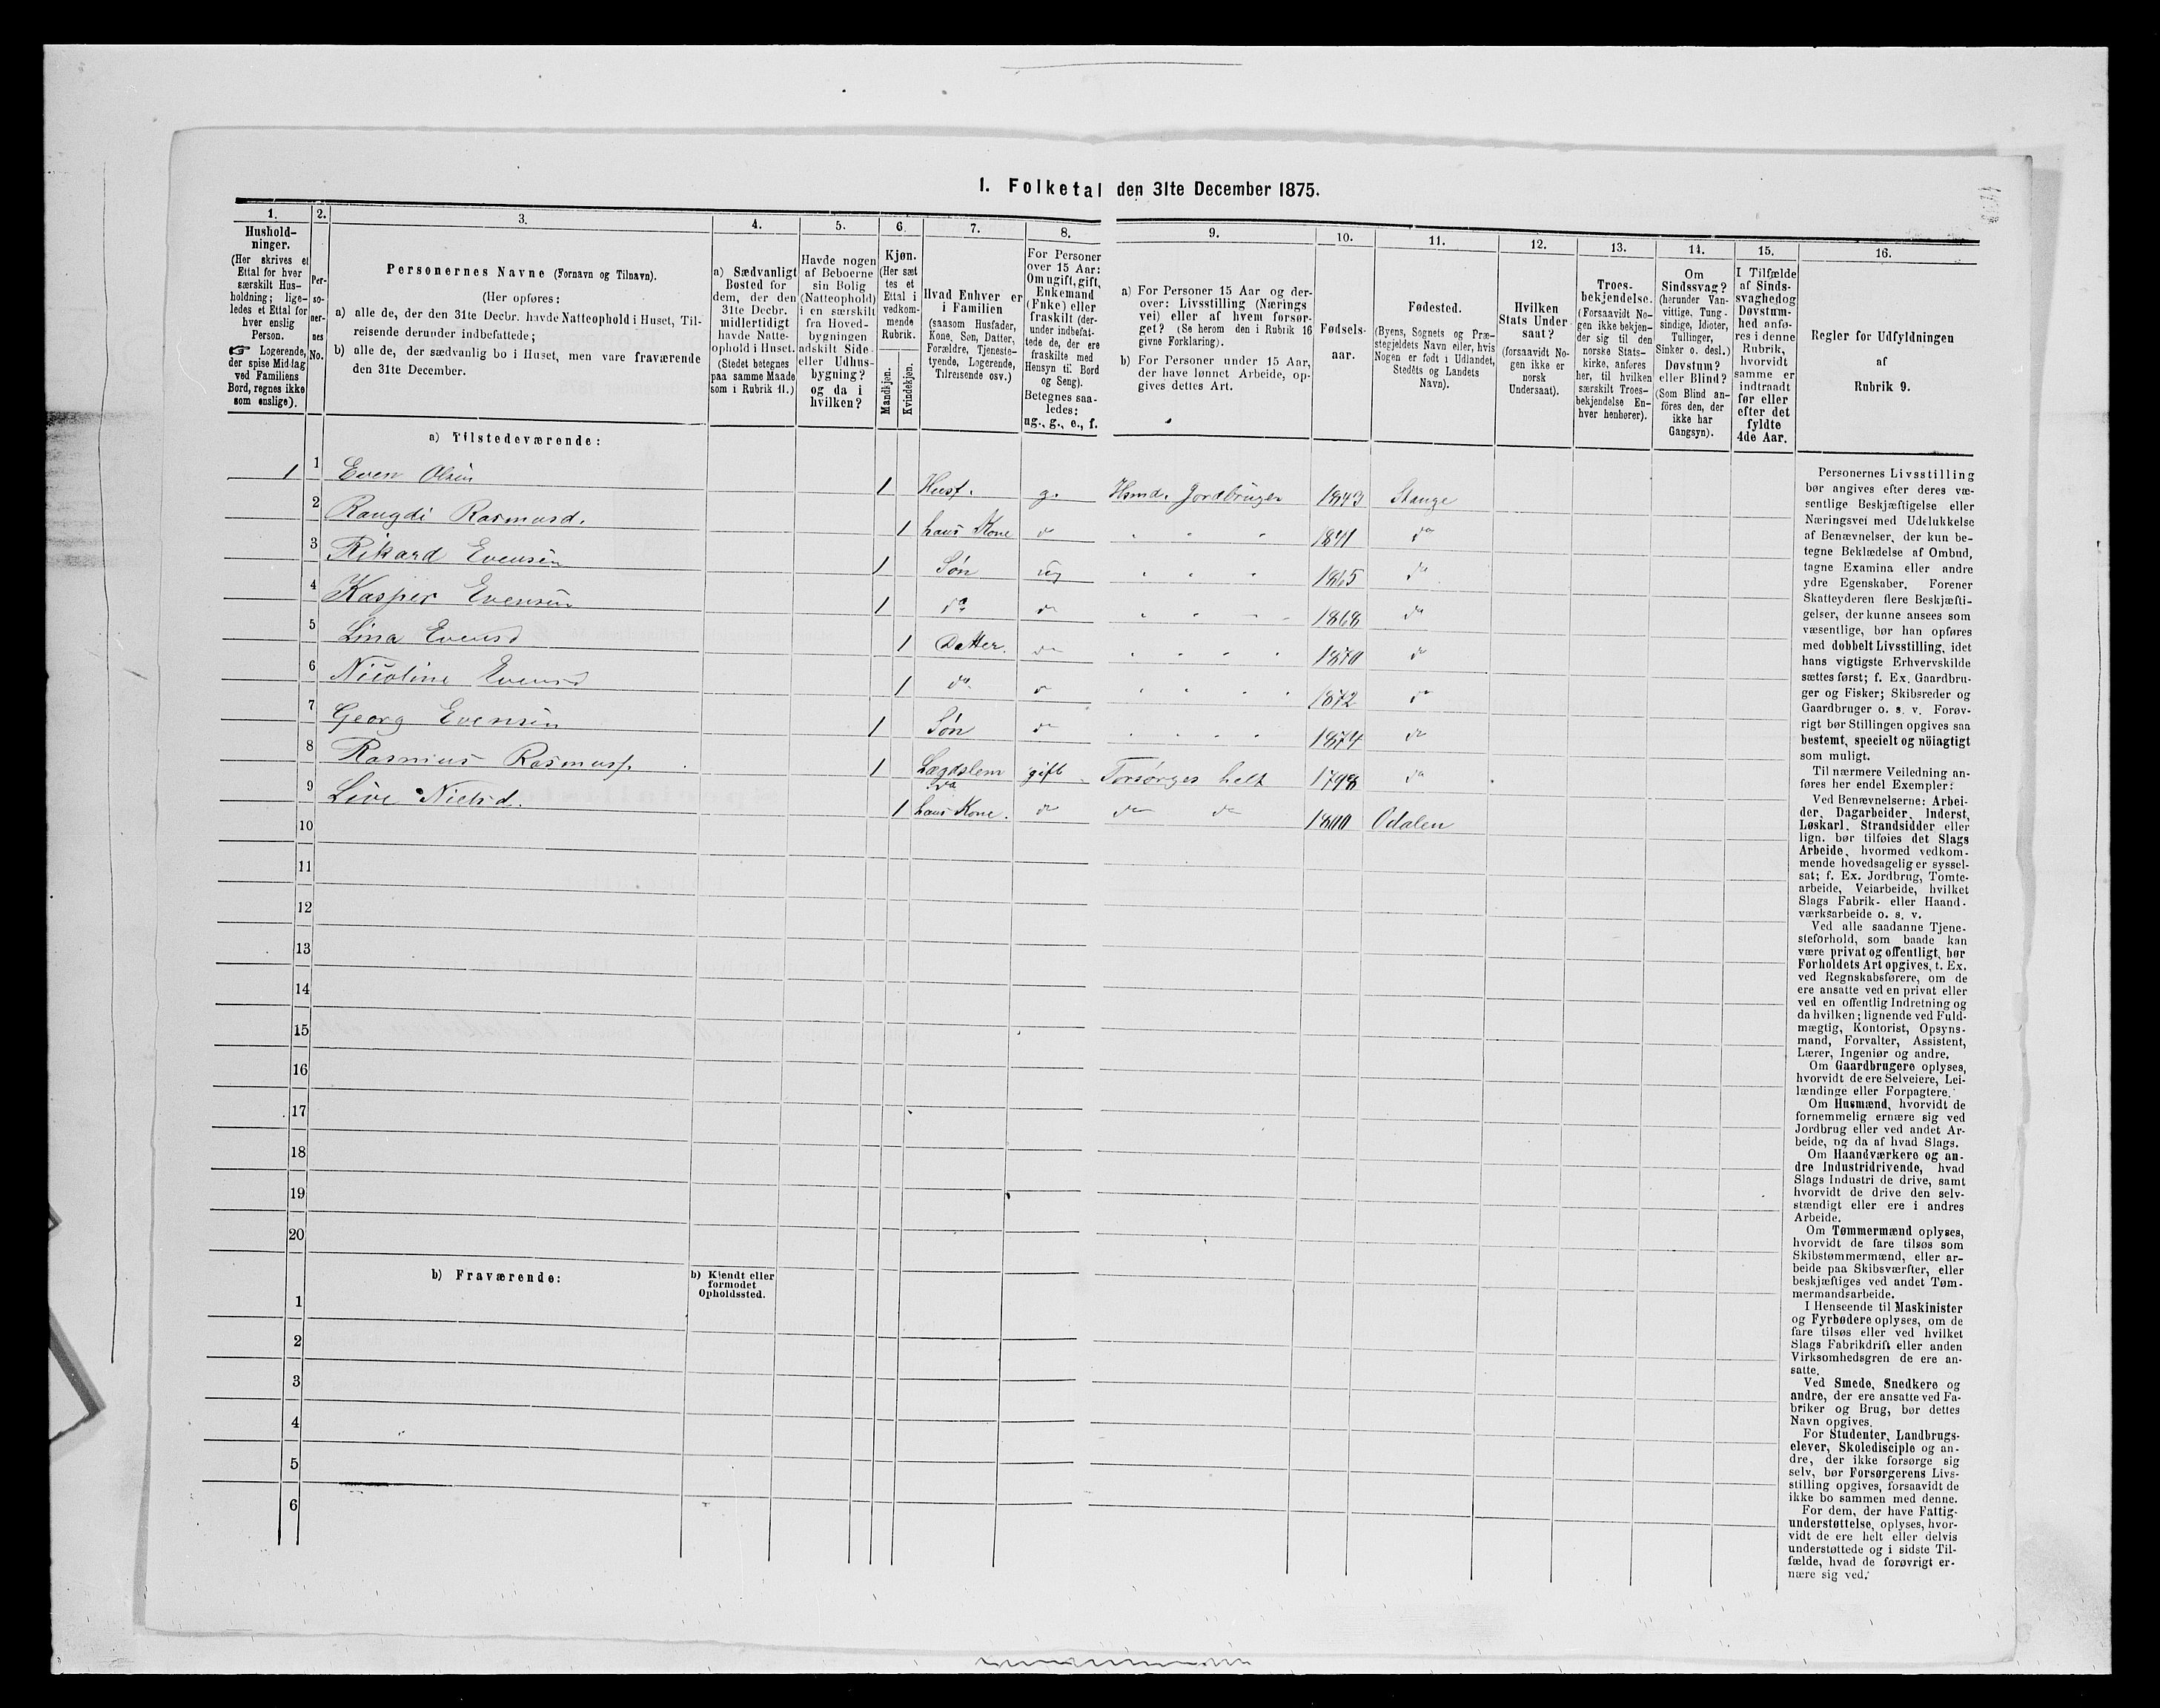 I. Folketal den 31te December 1875.
1. 2. 3. 4. 5. 6. 7. 8. 9. 10. 11. 12. 13. 14. 15. 16.
Hushold-
ninger.
(Her skrives et
Ettal for hver
særskilt Hus-
holdning; lige-
ledes et Ettal for
hver enslig
Person.
☞ Logerende,
der spise Middag
ved Familiens
Bord, regnes ikke
som enslige).
Per-
so-
ner-
nes
No.
Personernes Navne (Fornavn og Tilnavn).
(Her opføres:
a) alle de, der den 31te Decbr. havde Natteophold i Huset, Til-
reisende derunder indbefattede;
b) alle de, der sædvanlig bo i Huset, men vare fraværende
den 31te December.
a) Sædvanligt
Bosted for
dem, der den
31te Decbr.
midlertidigt
havde Natte-
ophold i Huset.
(Stedet betegnes
paa samme Maade
som i Rubrik 11.)
Havde nogen
af Beboerne
sin Bolig
(Natteophold)
i en særskilt
fra Hoved-
bygningen
adskilt Side-
eller Udhus-
bygning?
og da i
hvilken?
Kjøn.
(Her sæt
tes et
Ettal i
vedkom-
mende
Rubrik.
Mandkjøn.
Kvindekjøn.
Hvad Enhver er
i Familien
(saasom Husfader,
Kone, Søn, Datter,
Forældre, Tjeneste-
tyende, Logerende,
Tilreisende osv.)
For Personer
over 15 Aar:
Om ugift, gift,
Enkemand
(Enke) eller
fraskilt (der-
under indbefat-
tede de, der ere
fraskilte med
Hensyn til Bord
og Seng).
Betegnes saa-
ledes:
ug., g., e., f.
a) For Personer 15 Aar og der-
over: Livsstilling (Nærings
vei) eller af hvem forsør-
get? (Se herom den i Rubrik 16
givne Forklaring).
b) For Personer under 15 Aar,
der have lønnet Arbeide, op-
gives dettes Art.
Fødsels-
aar.
Fødested.
(Byens, Sognets og Præ-
stegjeldets Navn eller, hvis
Nogen er født i Udlandet,
Stedets og Landets
Navn).
Hvilken
Stats Under-
saat?
(forsaavidt No-
gen ikke er
norsk
Undersaat).
Troes-
bekjendelse.
(Forsaavidt No-
gen ikke bekjen-
der sig til den
norske Stats-
kirke, anføres
her, til hvilken
særskilt Troes-
bekjendelse En-
hver henhører).
Om
Sindssvag?
(herunder Van-
vittige, Tung-
sindige, Idioter,
Tullinger,
Sinker o. desl.)
Døvstum?
eller Blind?
(Som Blind an-
føres den, der
ikke har
Gangsyn).
I Tilfælde
af Sinds-
svaghed og
Døvstum-
hed anfø-
res i denne
Rubrik,
hvorvidt
samme er
indtraadt
før eller
efter det
fyldte
4de Aar.
Regler for Udfyldningen
af
Rubrik 9.
a) Tilstedeværende:
1 1 Even Olsen 1 Husf. g. Hsmd. Jordbruger 1843 Stange
2 Rangdi Rasmusd. 1 hans Kone do " " " 1841 do
3 Rikard Evensen 1 Søn ug " " " 1865 do
4 Kasper Evensen 1 do do " " " " 1868 do
5 Lina Evensd 1 Datter. do " " " " 1870 do
6 Nicoline Evensd 1 do do " " " " 1872 do
7 Georg Evensen 1 Søn do " " " " 1874 do
8 Rasmus Rasmusf. 1 Lægdslem gift Forsørges helt 1798 do
9 Live Nielsd. 1 do hans Kone. do do do 1800 Odalen
10
11
12
13
14
15
16
17
18
19
20
b) Fraværende:
b) Kjendt eller
formodet
Opholdssted.
1
2
3
4
5
6
Personernes Livsstilling
bør angives efter deres væ-
sentlige Beskjæftigelse eller
Næringsvei med Udelukkelse
af Benævnelser, der kun be-
tegne Beklædelse af Ombud,
tagne Examina eller andre
ydre Egenskaber. Forener
Skatteyderen flere Beskjæfti-
gelser, der kunne ansees som
væsentlige, bør han opføres
med dobbelt Livsstilling, idet
hans vigtigste Erhvervskilde
sættes først; f. Ex. Gaardbru-
ger og Fisker; Skibsreder og
Gaardbruger o. s. v. Forøv-
rigt bør Stillingen opgives saa
bestemt, specielt og nöiagtigt
som muligt.
Til nærmere Veiledning an-
føres her endel Exempler:
Ved Benævnelserne: Arbei-
der, Dagarbeider, Inderst,
Løskarl, Strandsidder eller
lign. bør tilføies det Slags
Arbeide, hvormed vedkom-
mende hovedsagelig er syssel-
sat; f. Ex. Jordbrug, Tomte-
arbeide, Veiarbeide, hvilket
Slags Fabrik- eller Haand-
værksarbeide o. s. v.
Ved alle saadanne Tjene-
steforhold, som baade kan
være privat og offentligt, bør
Forholdets Art opgives, t. Ex.
ved Regnskabsførere, om de
ere ansatte ved en privat eller
ved en offentlig Indretning og
da hvilken; lignende ved Fuld-
mægtig, Kontorist, Opsyns-
mand, Forvalter, Assistent,
Lærer, Ingeniør og andre.
Om Gaardbrugere oplyses,
hvorvidt de ere Selveiere, Lei-
lændinge eller Forpagtere.
Om Husmænd, hvorvidt de
fornemmelig ernære sig ved
Jordbrug eller ved andet Ar-
beide, og da af hvad Slags.
Om Haandværkere og an-
dre Industridrivende, hvad
Slags Industri de drive, samt
hvorvidt de drive den selv-
stændigt eller ere i andres
Arbeide.
Om Tømmermænd oplyses,
hvorvidt de fare tilsøs som
Skibstømmermænd, eller ar-
beide paa Skibsværfter, eller
beskjæftiges ved andet Tøm-
mermandsarbeide.
I Henseende til Maskinister
og Fyrbødere oplyses, om de
fare tilsøs eller ved hvilket
Slags Fabrikdrift eller anden
Virksomhedsgren de ere an-
satte.
Ved Smede, Snedkere og
andre, der ere ansatte ved Fa-
briker og Brug, bør dettes
Navn opgives.
For Studenter, Landbrugs-
elever, Skoledisciple og an-
dre, der ikke forsørge sig
selv, bør Forsørgerens Livs-
stilling opgives, forsaavidt de
ikke bo sammen med denne.
For dem, der have Fattig-
understøttelse, oplyses, hvor-
vidt de ere helt eller delvis
understøttede og i sidste Til-
fælde, hvad de forøvrigt er-
nære sig ved.